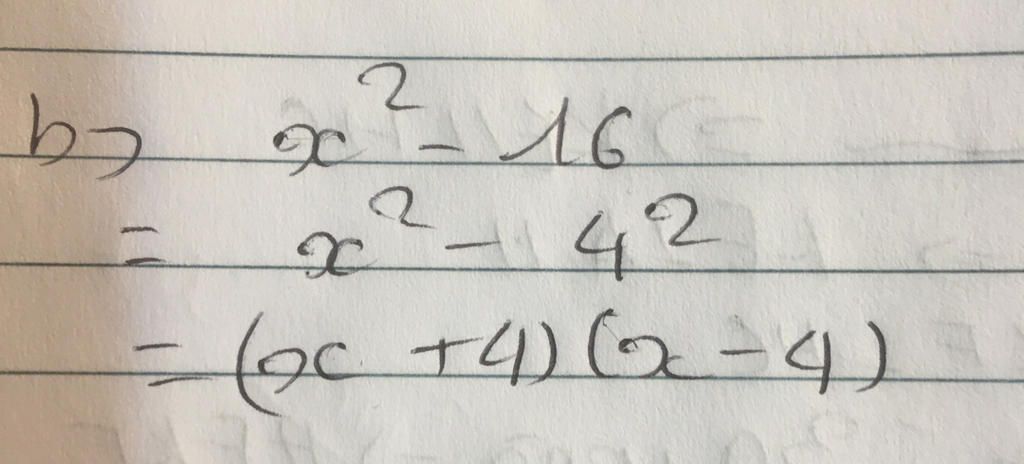 b) x² - 16
= x² - 4²
= (x + 4) (x - 4)